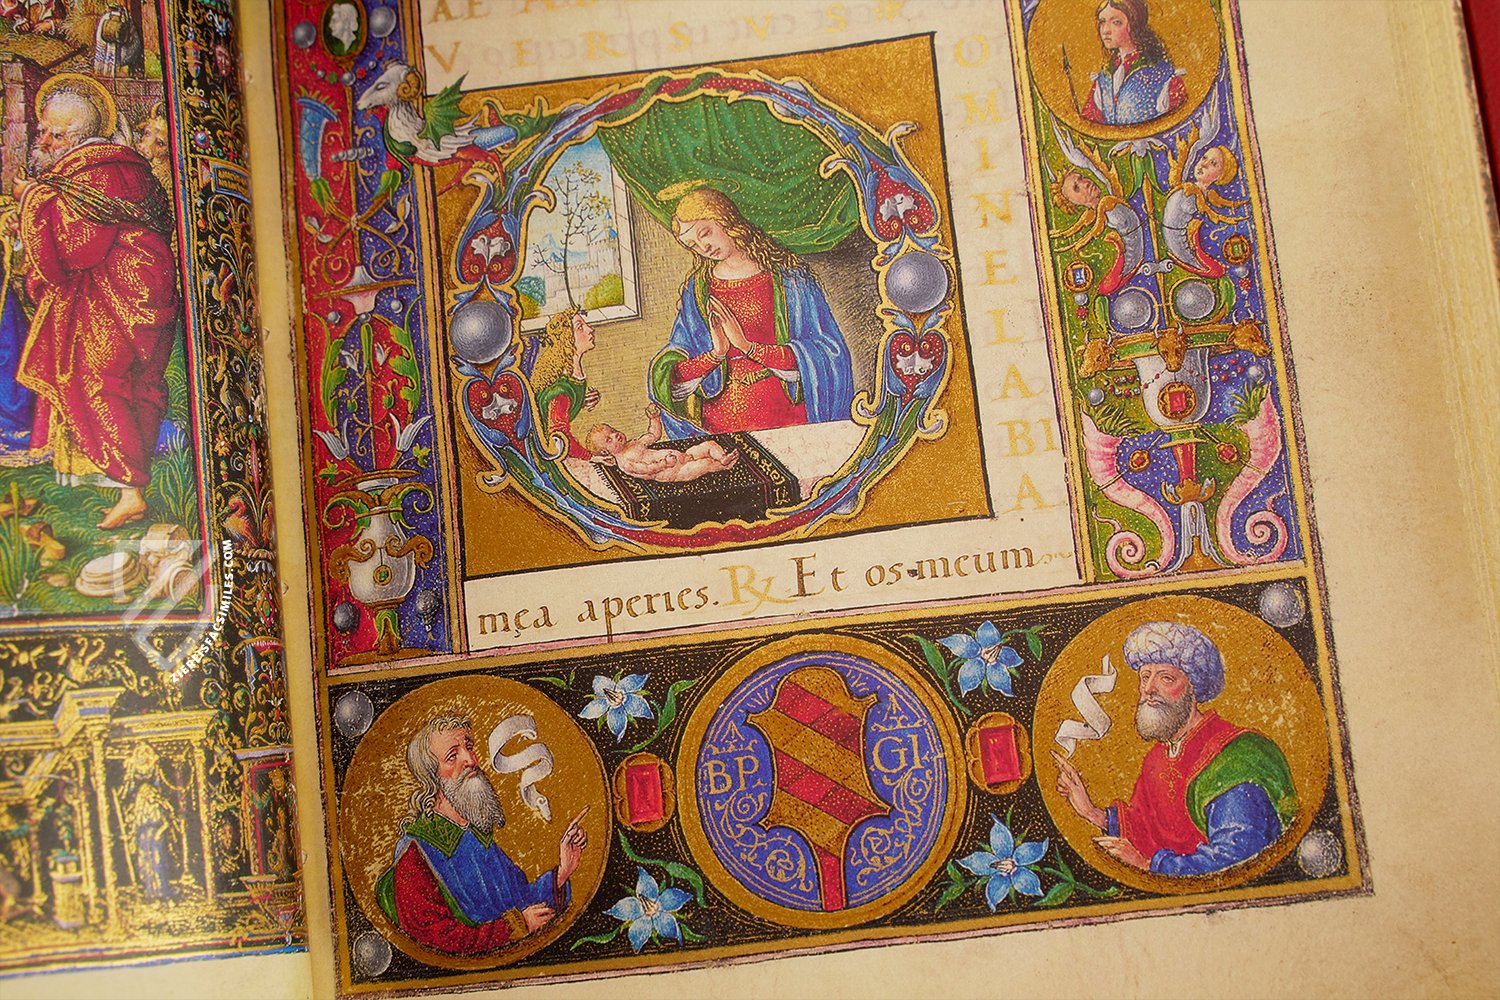 AE
VERSUS
OMINE LABIA
męa aperies. ℞ Et os meum
BP. GI
ZIEREISFACSIMILES.COM